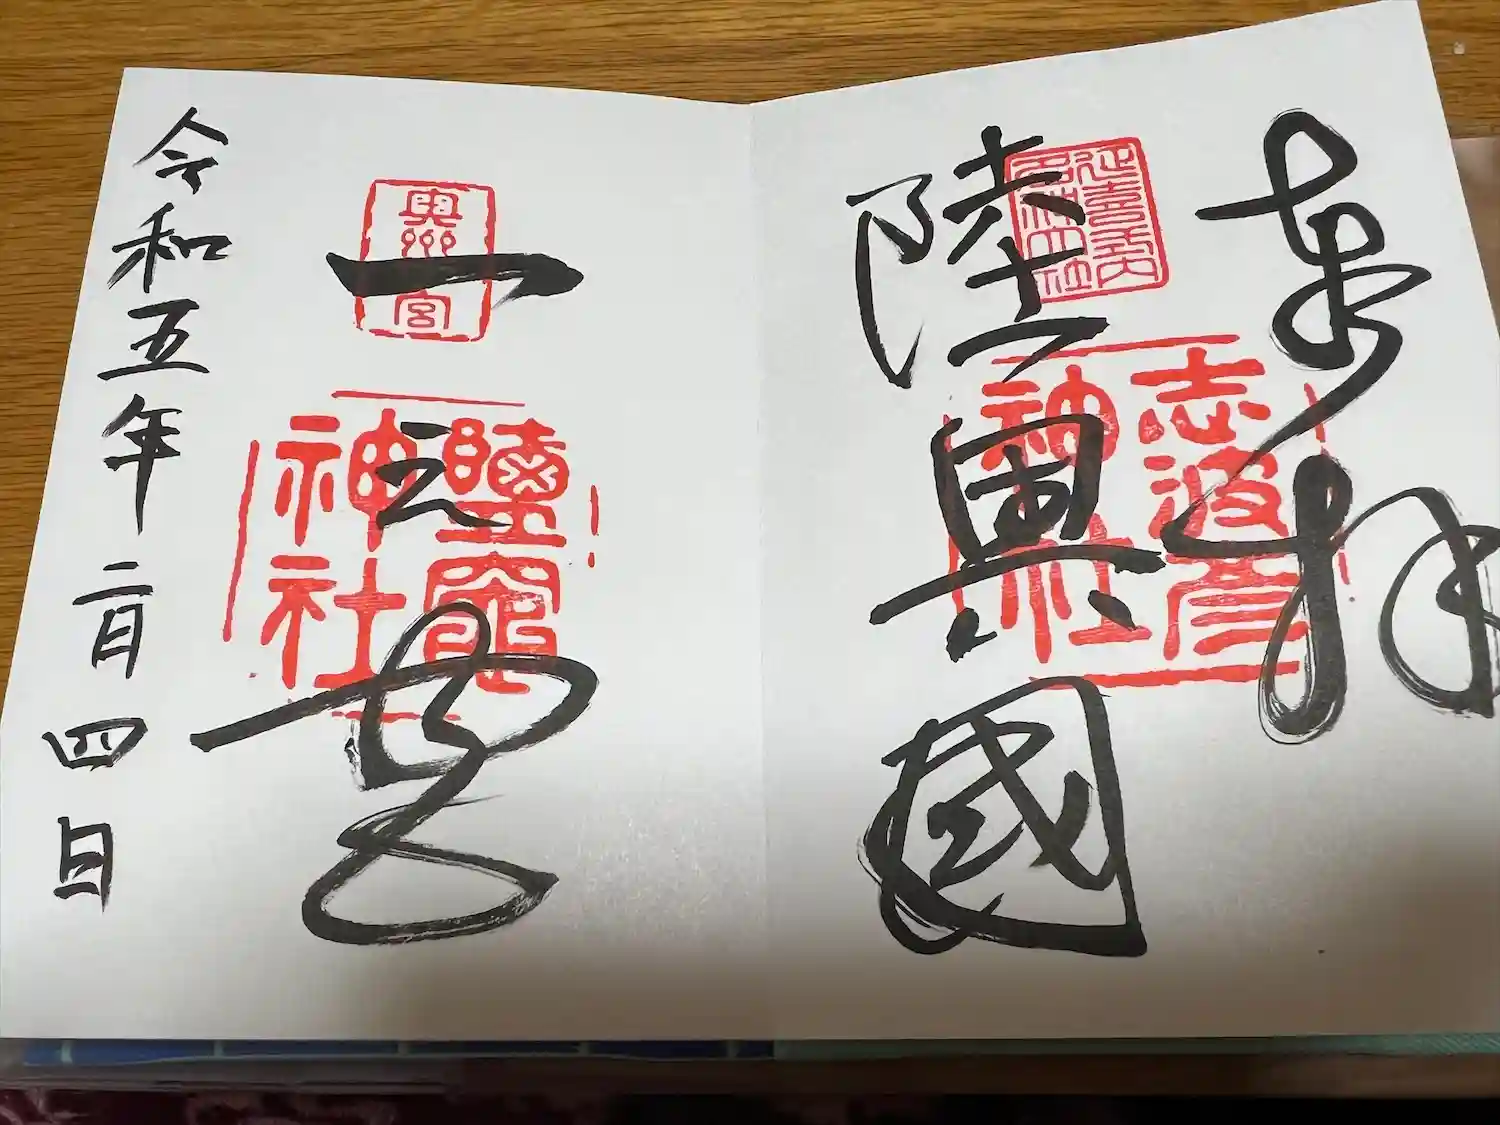 奉拝
陸奥國
延喜式内名神大社
志波彦
神社
一之宮
奥州一宮
鹽竈
神社
令和五年二月四日